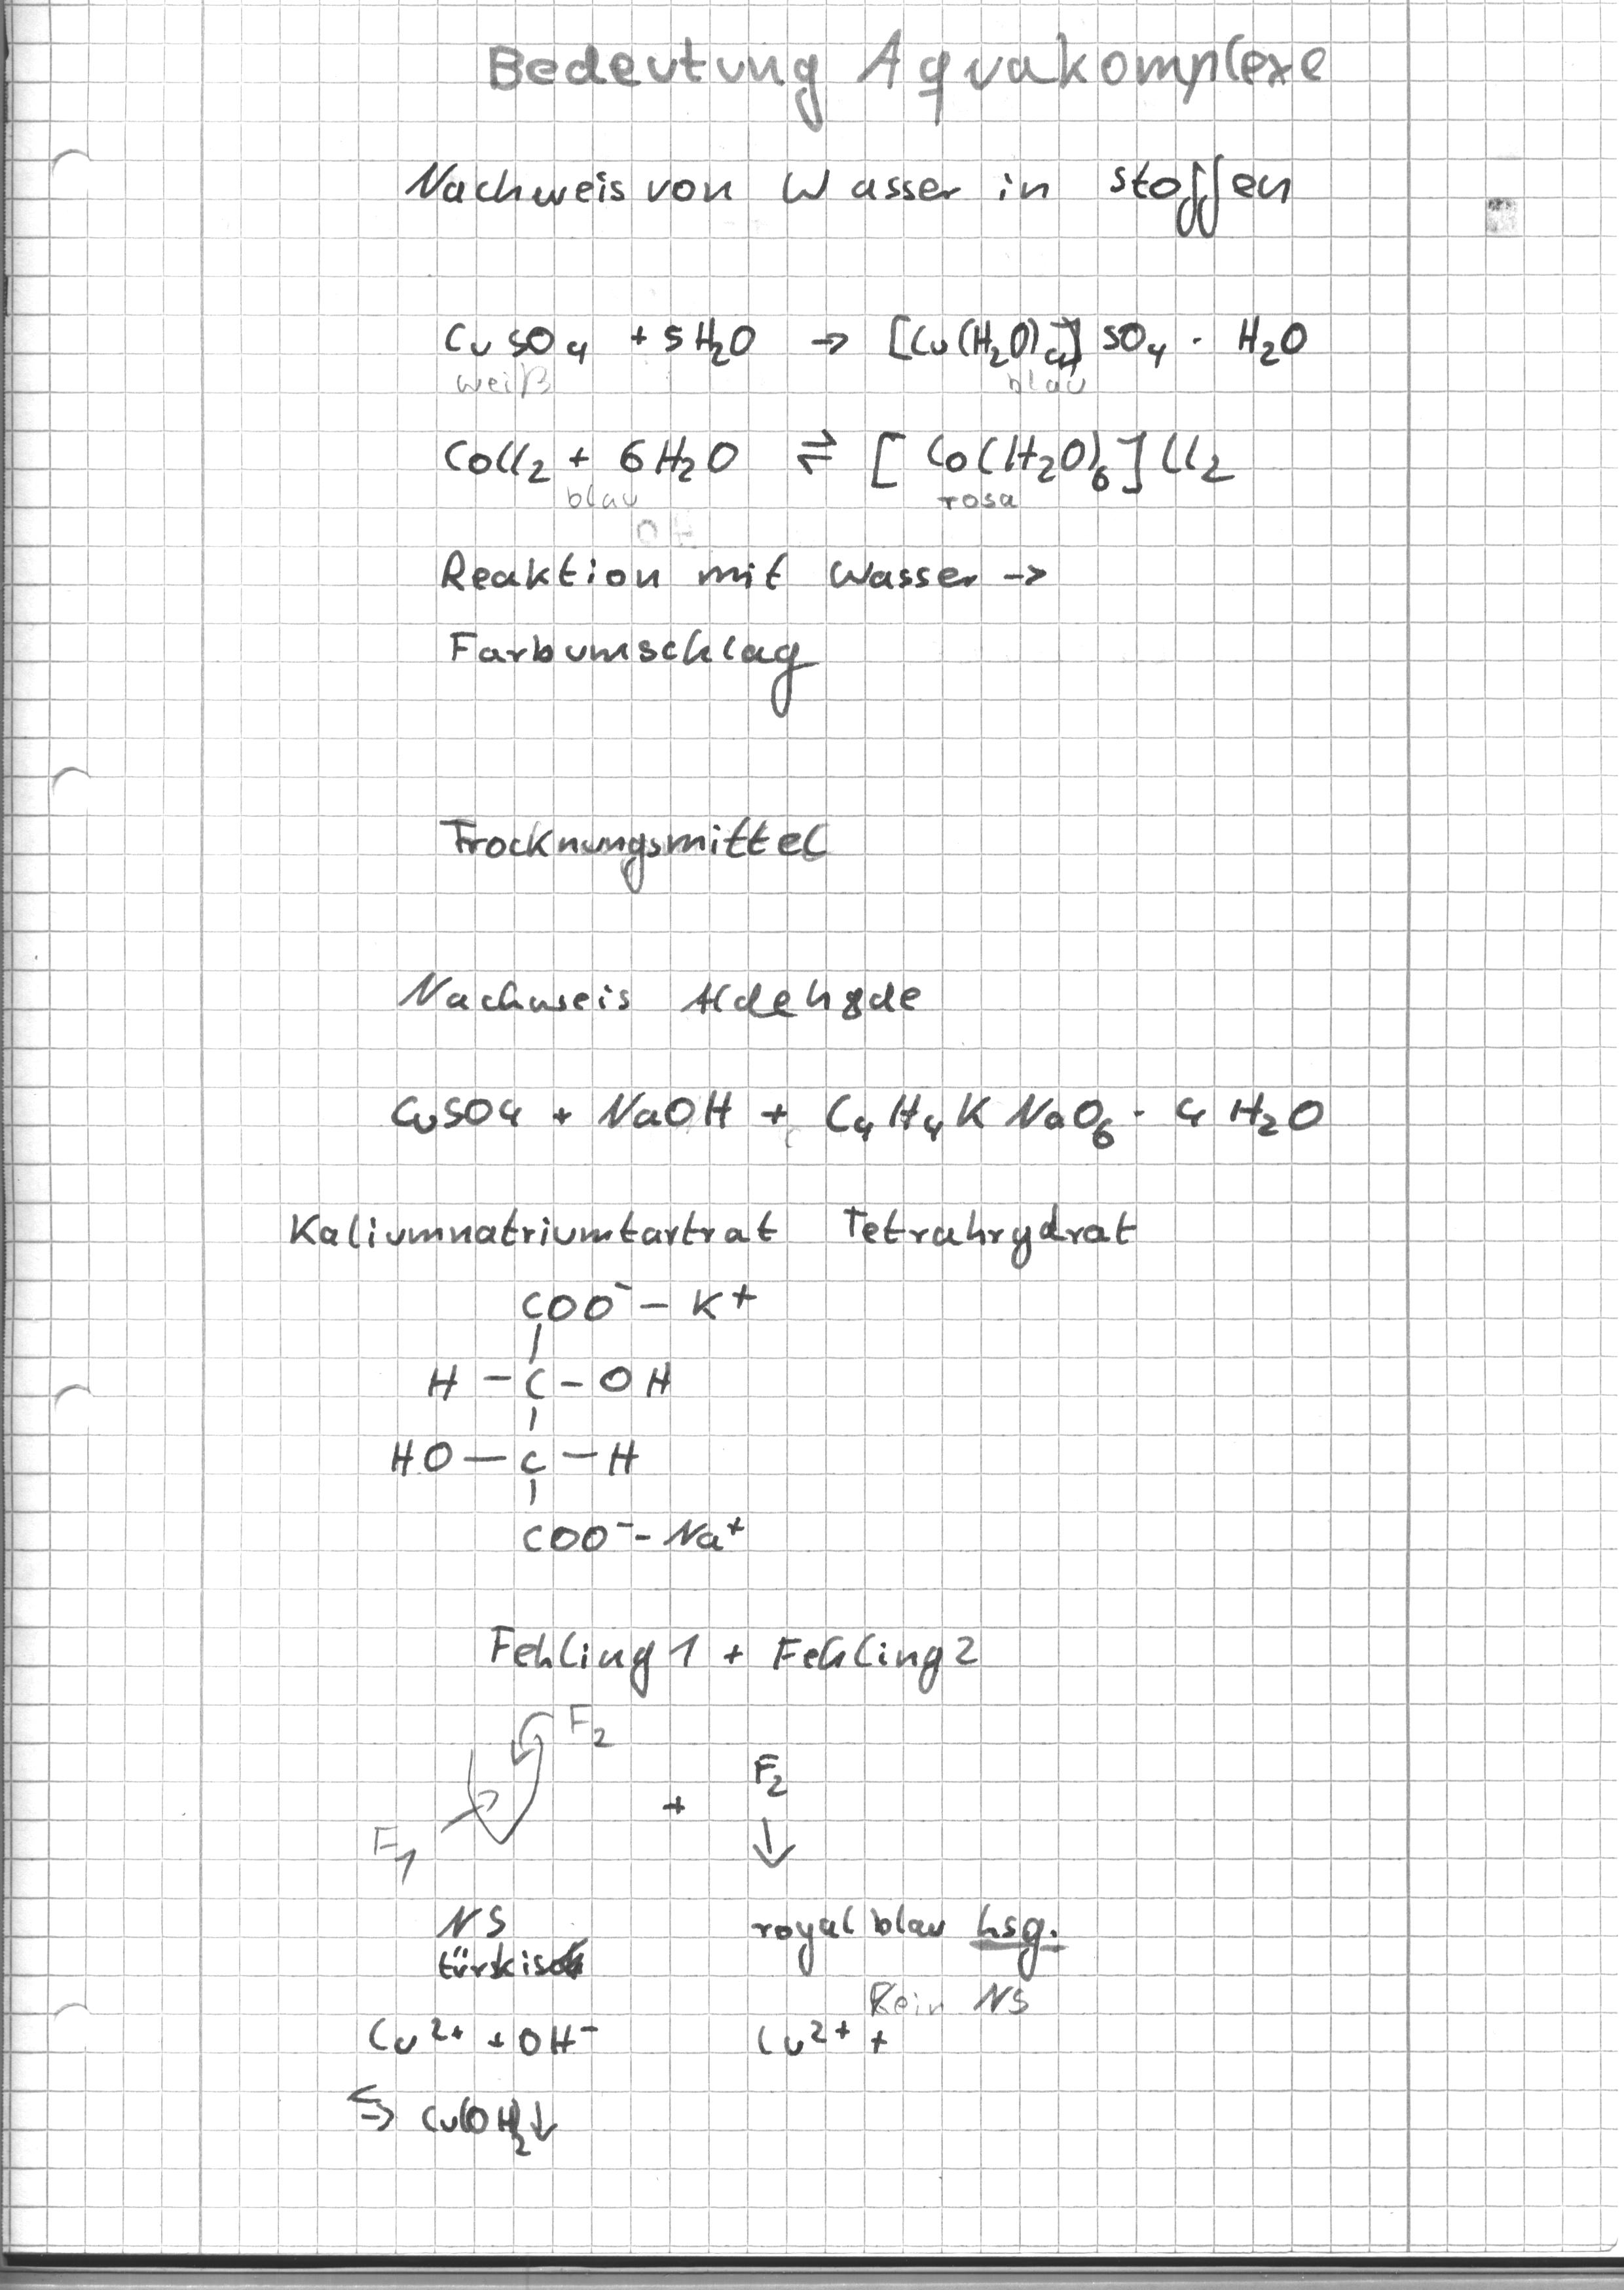 Bedeutung Aquakomplexe
Nachweis von Wasser in stoffen
CuSO₄ + 5H₂O → [Cu(H₂O)₄] SO₄ · H₂O
weiß blau
CoCl₂ + 6H₂O ⇌ [Co(H₂O)₆]Cl₂
blau rosa
OH
Reaktion mit Wasser →
Farbumschlag
Trocknungsmittel
Nachweis Aldehyde
CuSO4 + NaOH + C₄H₄K NaO₆ · 4 H₂O
Kaliumnatriumtartrat Tetrahrydrat
COO⁻ – K⁺
H – C – OH
HO – C – H
COO⁻ – Na⁺
Fehling 1 + Fehling 2
F₂
F₂
+
F₁
NS royal blau Lsg.
türkis
Kein NS
Cu²⁺ + OH⁻ Cu²⁺ +
⇋ Cu(OH)₂↓